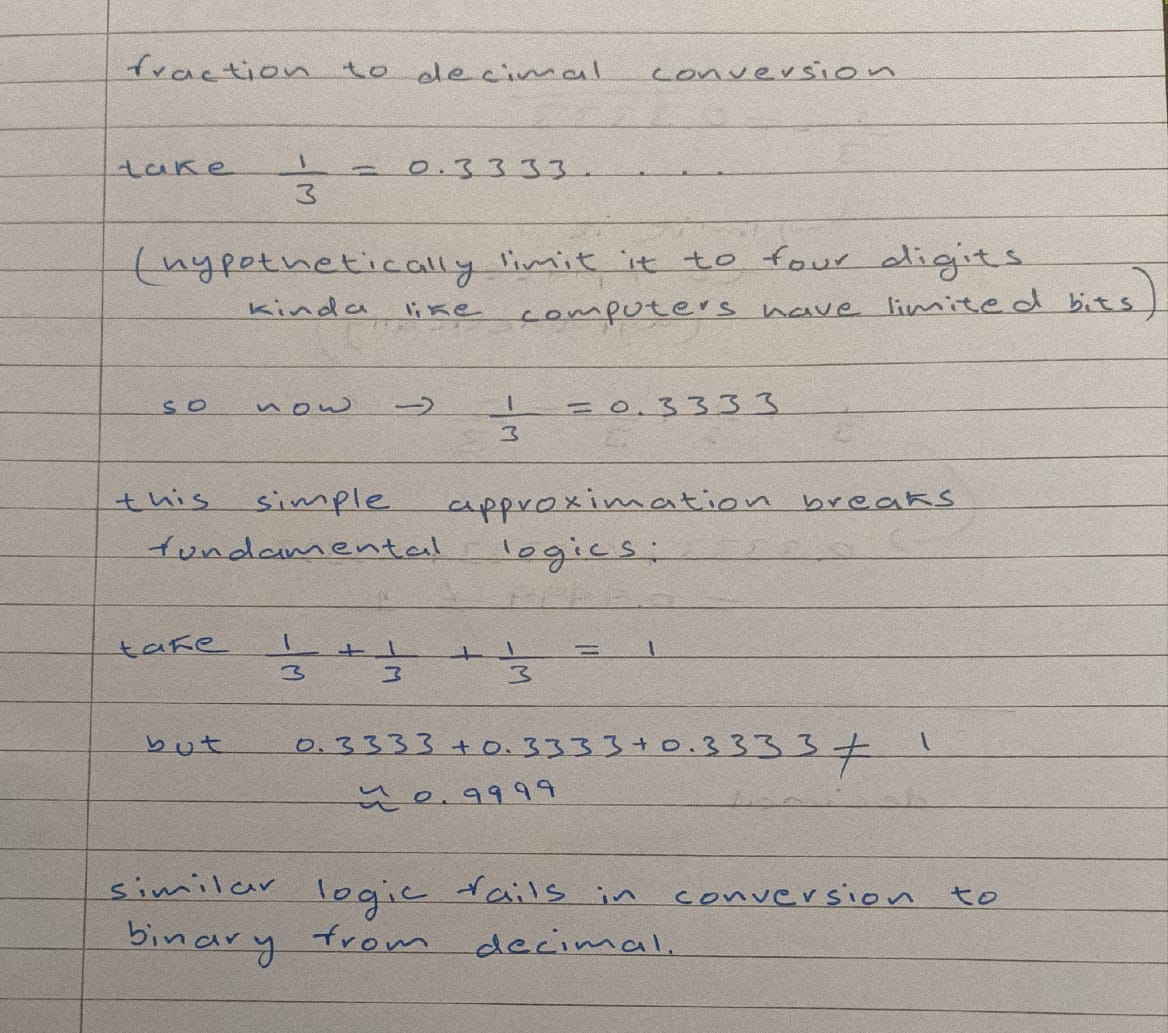 fraction to decimal conversion
take 1/3 = 0.3333.....
(hypothetically limit it to four digits
kinda like computers have limited bits)
so now → 1/3 = 0.3333
this simple approximation breaks
fundamental logics:
take 1/3 + 1/3 + 1/3 = 1
but 0.3333 + 0.3333 + 0.3333 ≠ 1
≈ 0.9999
similar logic fails in conversion to
binary from decimal.